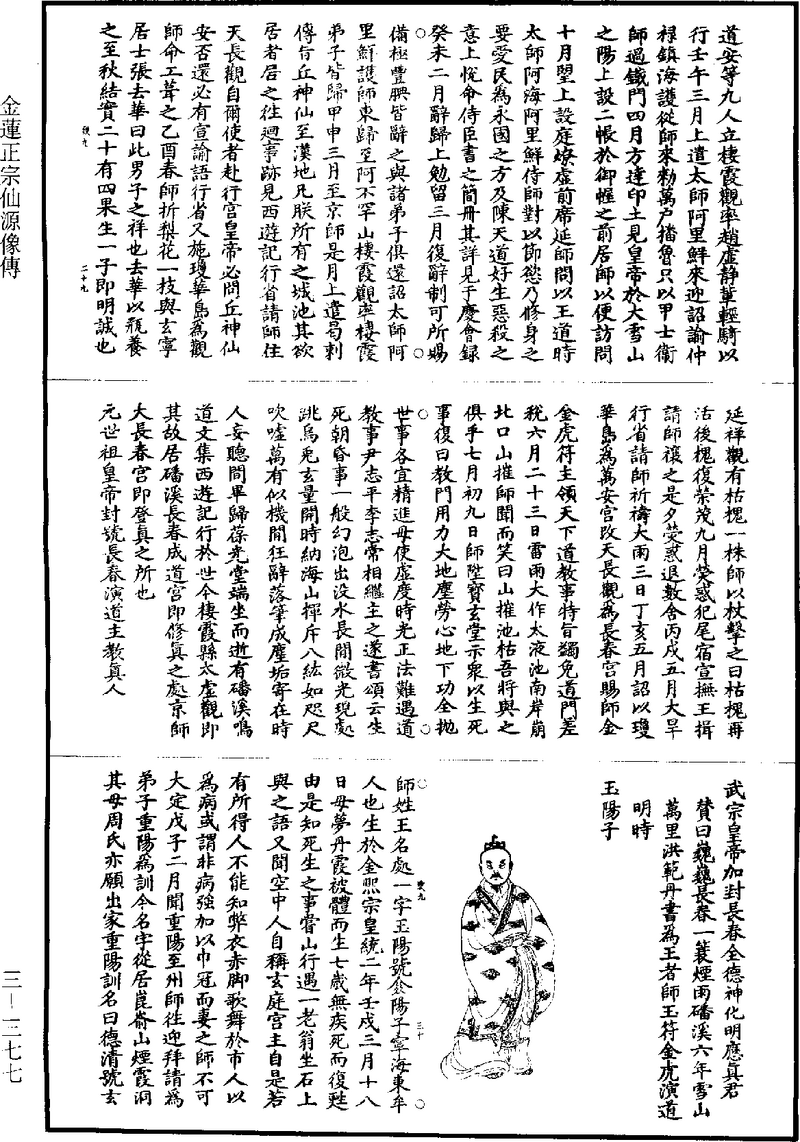 道安等九人立棲霞觀率趙虛靜輩輕騎以
行壬午三月上遣太師阿里鮮來迎詔諭仲
祿鎮海護從師來勑萬戶播魯只以甲士衛
師過鐵門四月方達印土見皇帝於大雪山
之陽上設二帳於御幄之前居師以便訪問
十月望上設庭燎虛前席延師問以至道時
太師阿海阿里鮮侍師對以節慾乃修身之
要愛民為永國之方及陳天道好生惡殺之
意上悅命侍臣書之簡冊其詳見于慶會錄
癸未二月辭歸上勉留三月復辭制可所賜
備極豐腆皆辭之與諸弟子俱還詔太師阿
里鮮護師東歸至阿不罕山棲霞觀率棲霞
弟子皆歸甲申三月至京師是月上遣曷剌
傳旨丘神仙至漢地凡朕所有之城池其欲
居者居之往迴事跡見西遊記行省請師住
天長觀自爾使者赴行宮皇帝必問丘神仙
安否還必有宣諭語行省又施瓊華島為觀
師命工葺之乙酉春師折梨花一枝與玄寧
居士張去華曰此男子之祥也去華以瓶養
之至秋結實二十有四果生一子即明誠也
二十九
延祥觀有枯槐一株師以杖擊之曰枯槐再
活後槐復榮茂九月熒惑犯尾宿宣撫王揖
請師禳之是夕熒惑退數舍丙戌五月大旱
行省請師祈禱大雨三日丁亥五月詔以瓊
華島為萬安宮改天長觀為長春宮賜師金
金虎符主領天下道教事特旨蠲免道門差
稅六月二十三日雷雨大作太液池南岸崩
北口山摧師聞而笑曰山摧池枯吾將與之
俱乎七月初九日師陞寶玄堂示眾以生死
事復曰教門用力大地塵勞心地下功全拋
世事各宜精進毋使虛度時光正法難遇道
教事尹志平李志常相繼主之遂書頌云生
死朝昏事一般幻泡出沒水長閒微光現處
跳烏兔玄量開時納海山揮斥八紘如咫尺
吹噓萬有似機關狂辭落筆成塵垢寄在時
人妄聽間畢歸葆光堂端坐而逝有磻溪鳴
道文集西遊記行於世今棲霞縣太虛觀即
其故居磻溪長春成道宮即修真之處京師
大長春宮即登真之所也
元世祖皇帝封號長春演道主教真人
武宗皇帝加封長春全德神化明應真君
贊曰巍巍長春一蓑煙雨磻溪六年雪山
萬里洪範丹書為王者師玉符金虎演道
明時
玉陽子
師姓王名處一字玉陽號金陽子寧海東牟
三十
人也生於金熙宗皇統二年壬戌三月十八
日母夢丹霞被體而生七歲無疾死而復甦
由是知死生之事嘗山行遇一老翁坐石上
與之語又聞空中人自稱玄庭宮主自是若
有所得人不能知弊衣赤脚歌舞於市人以
為病或謂非病強加以巾冠而妻之師不可
大定戊子二月聞重陽至州師徃迎拜請為
弟子重陽為訓今名字從居崑嵛山煙霞洞
其母周氏亦願出家重陽訓名曰德清號玄
金蓮正宗仙源像傳
三—三七七